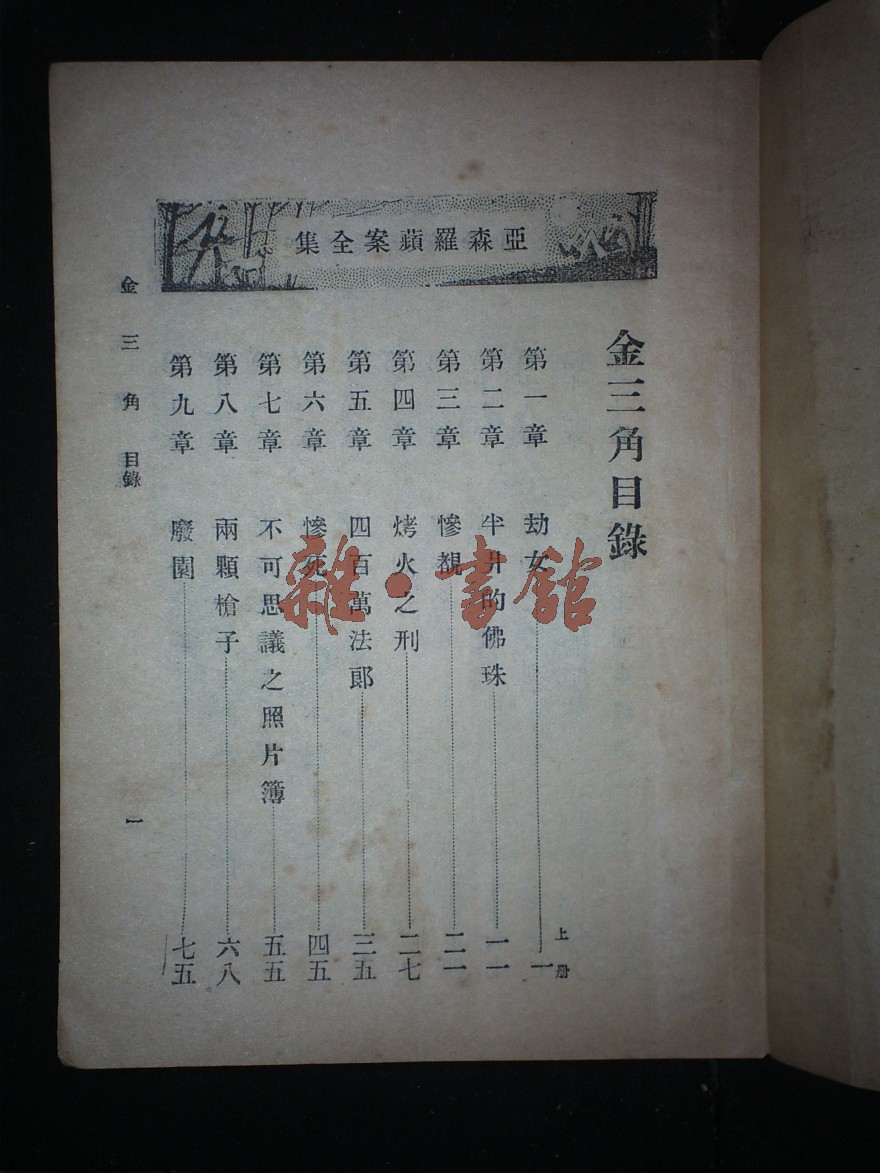 亞森羅蘋案全集
金三角目錄
上册
第一章 劫女 一
第二章 半片的佛珠 一一
第三章 慘覩 二一
第四章 烤火之刑 二七
第五章 四百萬法郎 三五
第六章 慘死 四五
第七章 不可思議之照片簿 五五
第八章 兩顆槍子 六八
第九章 廢園 七五
金三角 目錄
一
雜·書館